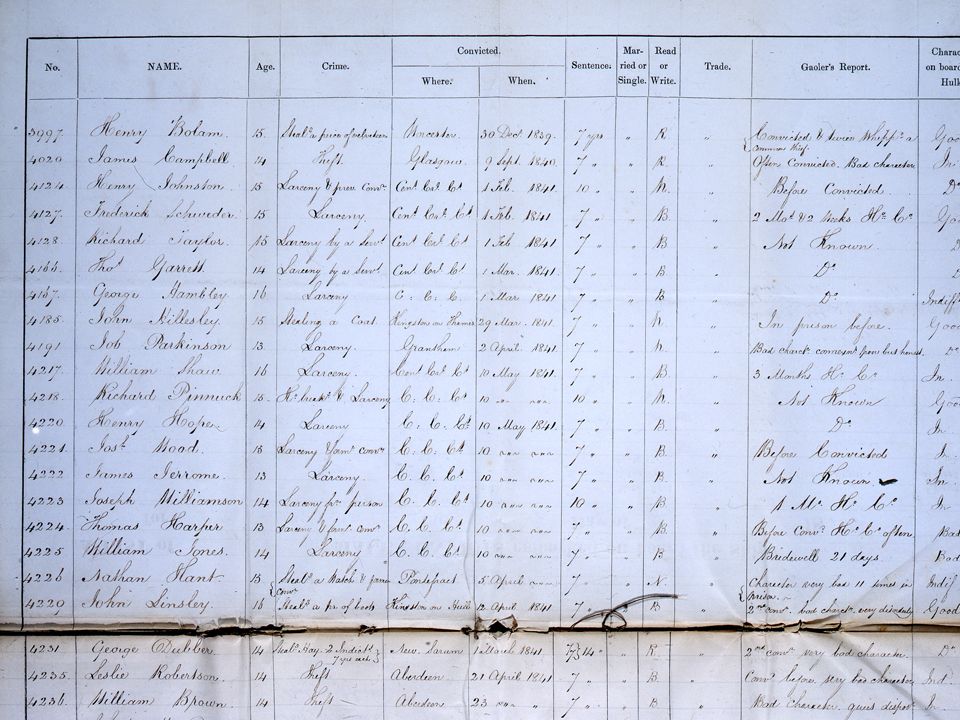 No. NAME. Age. Crime. Convicted. Where: When. Sentence: Married or Single. Read or Write. Trade. Gaoler's Report. Charac on board Hulk
3997 Henry Bolam. 15. Steal.g a piece of Worcester 30 Dec.r 1839. 7 yrs " R " Convicted & twice Whipp.d a common thief. Goo
4020 James Campbell. 14 Theft. Glasgow 9 Sept. 1840. 7 " " R " Often Convicted. Bad character In
4124 Henry Johnston. 15 Larceny & prev. conv. Cent. Crl. Ct 1 Feb. 1841 10 " " " Before Convicted D.o
4127. Frederick Schweder. 15 Larceny. Cent. Crl. Ct 1 Feb. 1841 7 " " B " 2 Mos. & 2 Weeks H.s C.n Goo
4128 Richard Taylor. 15 Larceny by a Serv.t Cent. Crl. Ct 1 Feb 1841 7 " " B " Not Known.
4155. Tho.s Garrett. 14 Larceny by a Serv.t Cent Crl. Ct 1 Mar. 1841. 7 " " B. " D.o
4157. George Hambley 16 Larceny C. C. C. 1 Mar 1841 7 " " B " D.o Indiff
4185. John Nillesley. 15 Stealing a Coat. Kingston on Thames 29 Mar. 1841. 7 " " " In prison before. Good
4191 Job Parkinson 13. Larceny. Grantham 2 April. 1841. 7 " " " Bad charact. poor but honest. D.o
4217. William Shaw 16 Larceny. Cent Crl. Ct 10 May 1841. 7 " " B " 3 Months H.s C.n In.
4218. Richard Pinnuck 15. & Larceny C. C. Ct 10 " " 10 " " " Not Known Good
4220 Henry Hope. 14 Larceny C. C. Ct. 10 May 1841. 7 " " B " D.o In.
4221. Jos.h Wood. 15 Larceny & form.r conv. C. C. Ct. 10 " " 7 " " B. " Before Convicted In.
4222 James Jerrome. 13 Larceny. C. C. Ct 10 " " 7 " " B. Not Known In.
4223 Joseph Williamson 14 Larceny fr. person C. C. Ct. 10 " " 10 " " B 1 M. H.s C.n In
4224. Thomas Harper 13 Larceny & prev. conv. C. C. Ct. 10 " " 7 " " B Before Conv. H.s C.n often. Bad
4225 William Jones. 14 Larceny C. C. Ct. 10 " " 7 " " B " Bridewell 21 days. Bad
4226 Nathan Hant 13 Steal.g a Watch & prev. conv. Pontefract 5 April " 7 " " N. " Character very bad 11 times in prison. Indif
4220 John Linsley. 16 Steal.g a pr. of boots Kingston on Hull 12 April 1841 7 " B " 2nd conv. bad charact. very Good
4231 George Dubber. 14 Steal.g 2 Indict.s 7 yrs each New Sarum 1 March 1841 7 7 } 14 " " R " 2nd conv. very bad character. D.o
4235. Leslie Robertson. 14 Theft Aberdeen. 21 April 1841 7 " " B. " Conv. before, very bad character Ind
4236. William Brown. 14 Theft Aberdeen 23 " " 7 " " " Bad Character In.